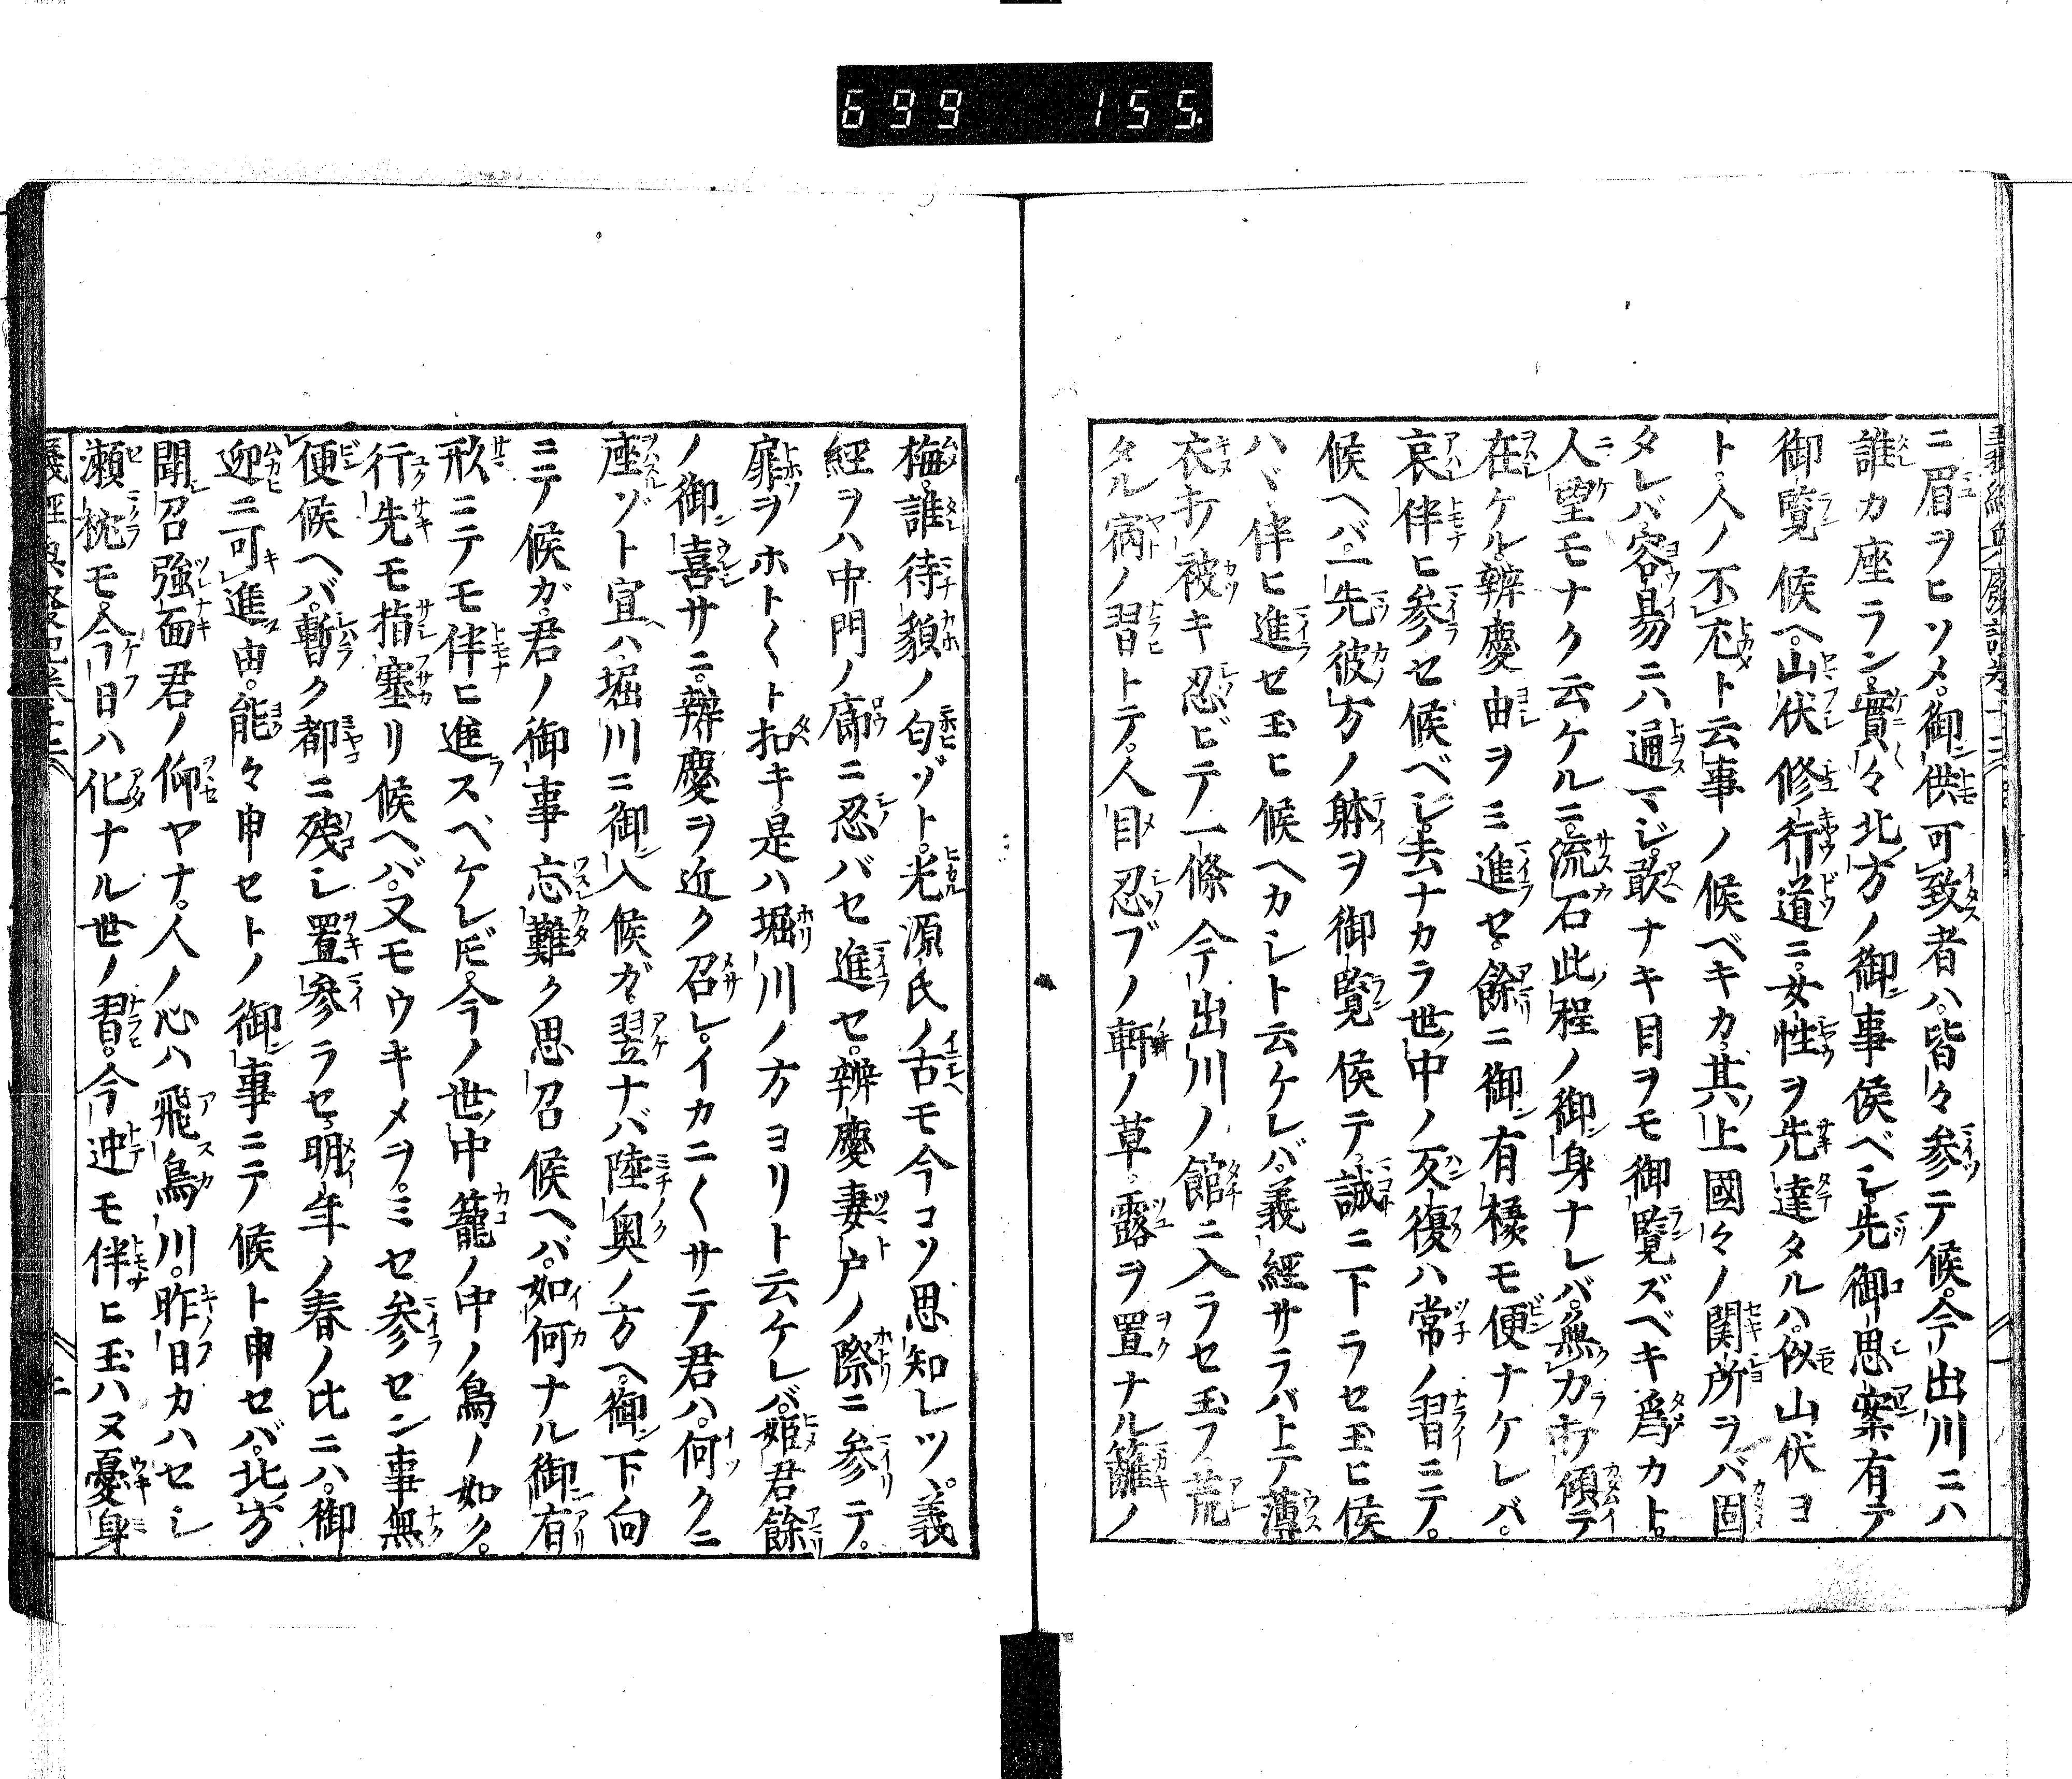 699 155.
ニ眉ヲヒソメ。御供可致者ハ。皆々参テ候。今出川ニハ
誰カ座ラン。實々北方ノ御事侯ベシ。先御思案有テ
御覧候ヘ。山伏修行道ニ。女性ヲ先達タルハ。似山伏ヨ
ト。人ノ不尤ト云事ノ候ベキカ。其上國々ノ関所ヲバ固
タレバ。容易ニハ通マジ。敢ナキ目ヲモ御覧ズベキ爲カト。
人望モナク云ケルニ。流石此程ノ御身ナレバ。無力打傾テ
在ケル。辨慶由ヲミ進セ。餘ニ御有様モ便ナケレバ。
哀伴ヒ参ノセ候ベシ。去ナカラ世中ノ反復ハ常ノ習ニテ。
候ヘバ。一先彼方ノ躰ヲ御覧候テ。誠ニ下ラセ玉ヒ侯
ハヾ伴ヒ進セ玉ヒ候ヘカシト云ケレバ。義經サラバトテ薄
衣打被キ忍ビテ一條今出川ノ館ニ入ラセ玉フ荒
タル宿ノ習トテ。人目忍ブノ軒ノ草。露ヲ置ナル籬ノ
梅。誰待貌ノ匂ゾト。光源氏ノ古モ今コソ思知レツヽ。義
經ヲハ中門ノ廊ニ忍バセ進セ。辨慶妻戸ノ際ニ参テ。
扉ヲホト〱ト扣キ。是ハ堀川ノ方ヨリト云ケレバ。姫君餘
ノ御喜サニ。辨慶ヲ近ク召レ。イカニ〱サテ君ハ。何クニ
座ゾト宣ハ堀川ニ御入候ガ。翌ナバ陸奥ノ方ヘ。御下向
ニテ候ガ。君ノ御事忘難ク思召候ヘバ。如何ナル御有
形ニテモ伴ヒ進スベケレ𪜈。今ノ世中籠ノ中ノ鳥ノ如ク。
行先モ指塞リ候ヘバ。又モウキメヲ。ミセ参セン事無
便候ヘバ。暫ク都ニ残シ置参ラセ。明年ノ春ノ比ニハ。御
迎ニ可進由。能々申セトノ御事ニテ候ト申セバ。北方
聞召強面君ノ仰ヤナ。人ノ心ハ飛鳥川。昨日カハセシ
瀬枕モ。今日ハ化ナル世ノ習。今迚モ伴ヒ玉ハヌ憂身